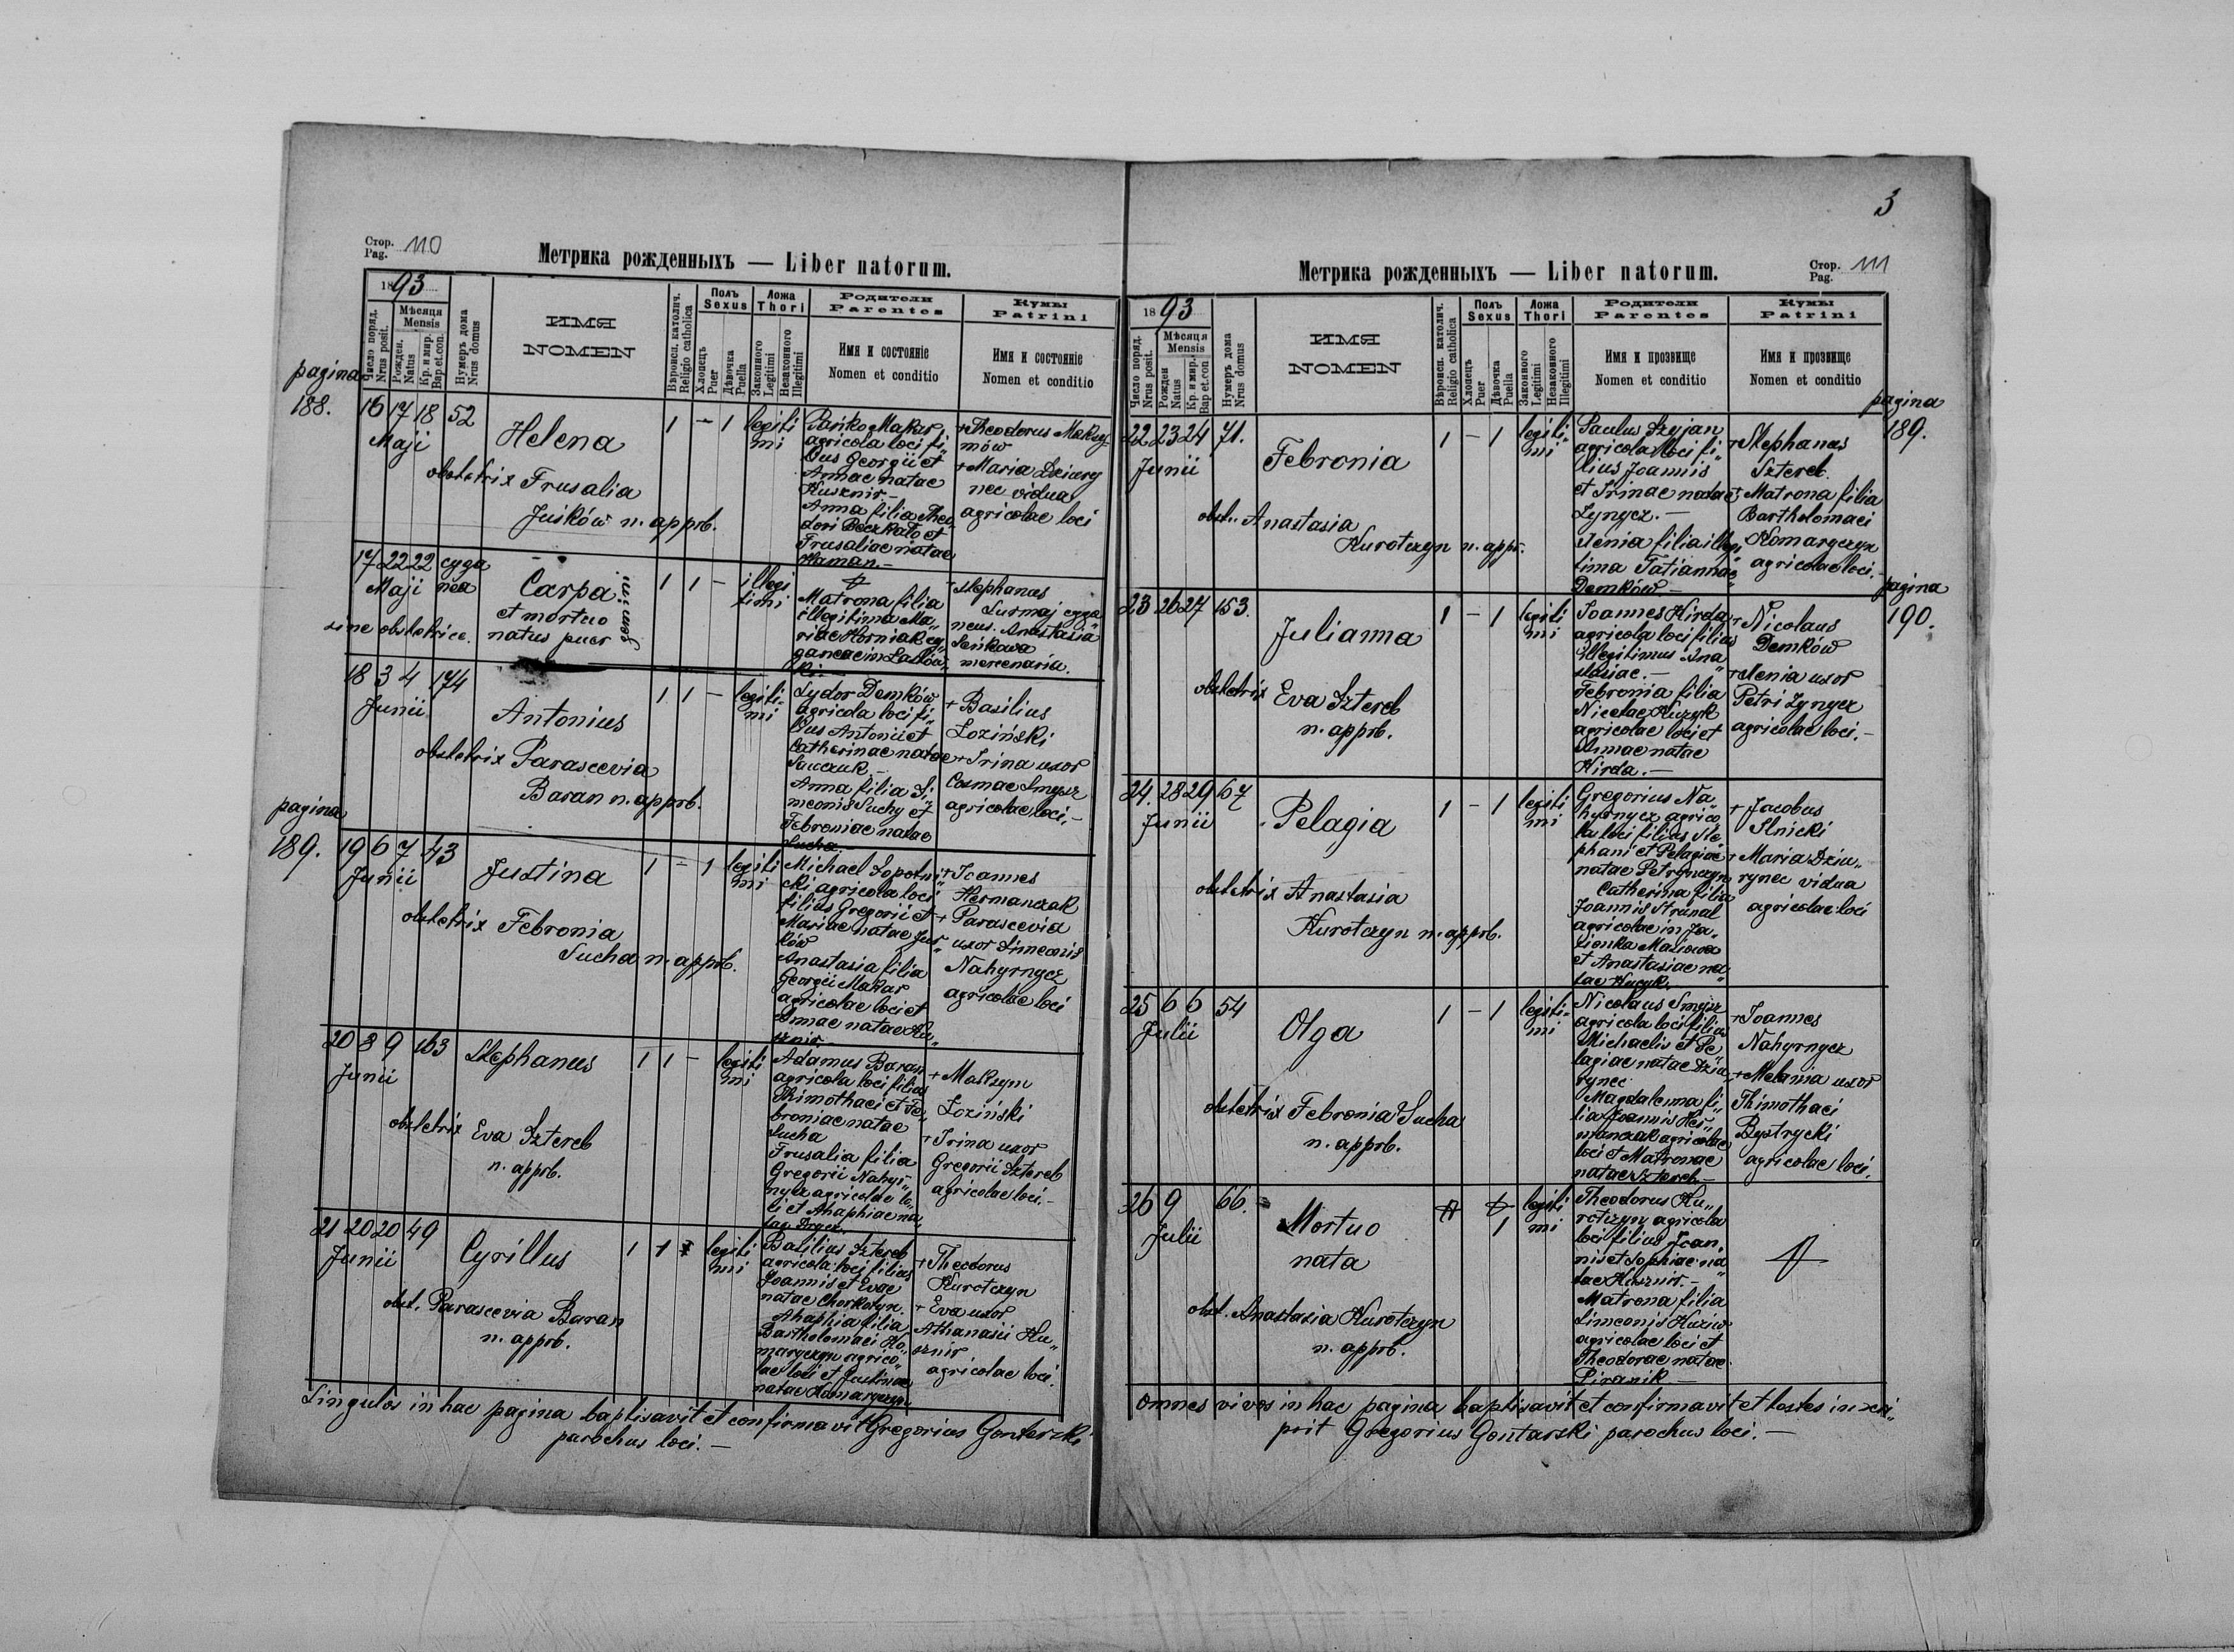 Стор. 110
Pag.
Метрика рожденныхъ — Liber natorum.
1893
Число поряд.
Nrus posit.
Мѣсяця
Mensis
Рожден.
Natus
Кр. и мир.
Bap. et. con.
Нумеръ дома
Nrus domus
ИМЯ
NOMEN
Вѣроисп. католич.
Religio catholica
Полъ
Sexus
Хлопецъ
Puer
Дѣвочка
Puella
Ложа
Thori
Законного
Legitimi
Незаконного
Illegitimi
Родители
Parentes
Имя и состояніе
Nomen et conditio
Кумы
Patrini
Имя и состояніе
Nomen et conditio
pagina
188.
16 17 18 52
Maji
Helena
obstetrix Frusalia
Juśków n. approb.
1 - 1 legiti
mi
Pańko Makar
agricola loci fi„
lius Georgii et
Annae natae
Kusznir.-
Anna filia Theo
dori Boczkało et
Frusaliae natae
Haman.-
+Theodorus Maksy
mów
+Maria Dziury
nec vidua
agricolae loci
17 22 22 cyga
Maji nea
Carpa
et mortuo
natus puer
gemini
sine obstetrice.
1 1 - illegi
timi
Matrona filia
illegitima Ma„
riae Korniak cy„
ganeae in
+Stephanus
Surmaj cyga„
neus. Anastasia
Seńkowa
mercenaria.
18 3 4 174
Junii
Antonius
obstetrix Parascevia
Baran n. approb.
1 1 - legiti-
mi
Sydor Demków
agricola loci fi„
lius Antonii et
Catherinae natae
Sawczuk.-
Anna filia Si„
meonis Suchy et
Febroniae natae
Sucha.-
+ Basilius
Łoziński
+ Irina uxor
Cosmae Smysz
agricolae loci.-
pagina
189.
19 6 7 43
Junii
Justina
obstetrix Febronia
Sucha n. approb.
1 - 1 legiti
mi
Michael Sopotni„
cki agricola loci
filius Gregorii et
Mariae natae Juś„
ków
Anastasia filia
Georgii Makar
agricolae loci et
Annae natae Ku„
sznir.-
+Joannes
Hermanczak
+ Parascevia
uxor Simeonis
Nahyrnycz
agricolae loci
20 8 9 163
Junii
Stephanus
obstetrix Eva Sztereb
n. approb.
1 1 - legiti
mi
Adamus Baran
agricola loci filius
Thimothaei et Fe„
broniae natae
Sucha
Frusalia filia
Gregorii Nahyr„
nycz agricolae lo„
ci et Ahaphiae na„
tae
+ Maksym
Łoziński
+ Irina uxor
Gregorii Sztereb
agricolae loci.-
21 20 20 49
Junii
Cyrillus
obst. Parascevia Baran
n. approb.
1 1 legiti
mi
Basilius Sztereb
agricola loci filius
Joannis et Evae
natae Chorkotyn.
Ahaphia filia
Bartholomaei Ko„
maryczyn agrico„
lae loci et Justinae
natae Komaryczyn
+Theodorus
Kurotczyn
+ Eva uxor
Athanasii Ku„
sznir
agricolae loci.
Singulos in hac pagina baptisavit et confirmavit Gregorius Gontarski
parochus loci.-
3
Стор. 111
Pag.
Метрика рожденныхъ — Liber natorum.
1893
Число поряд.
Nrus posit.
Мѣсяця
Mensis
Рожден
Natus
Кр. и мир.
Bap et. con
Нумеръ дома
Nrus domus
ИМЯ
NOMEN
Вѣроисп. католич.
Religio catholica
Полъ
Sexus
Хлопецъ
Puer
Дѣвочка
Puella
Ложа
Thori
Законного
Legitimi
Незаконного
Illegitimi
Родители
Parentes
Имя и прозвище
Nomen et conditio
Кумы
Patrini
Имя и прозвище
Nomen et conditio
pagina
189.
22 23 24 71.
Junii
Febronia
obst.. Anastasia
Kurotczyn n. appr.
1 - 1 legiti„
mi
Paulus Szyjan
agricola loci fi„
lius Joannis
et Irinae natae
Zynycz.-
Xenia filia illegi„
tima Tatiannae
Demków.-
+Stephanus
Sztereb.
+Matrona filia
Bartholomaei
Komaryczyn
agricolae loci.-
pagina
190.
23 26 27 153.
Julianna
obstetrix Eva Sztereb
n. approb.
1 - 1 legiti
mi
Joannes Hirda
agricola loci filius
illegitimus Ana„
stasiae.-
Febronia filia
Nicolae Kuzyk
agricolae loci et
Annae natae
Hirda.-
+Nicolaus
Demków
+Xenia uxor
Petri Zynycz
agricolae loci.-
24. 28 29 67
Junii
Pelagia
obstetrix Anastasia
Kurotczyn n. approb.
1 - 1 legiti
mi
Gregorius Na„
hyrnycz agrico„
la loci filius Ste„
phani et Pelagiae
natae Petrynczyn
Catherina filia
Joannis Strunal
agricolae in Ja„
sionka Masiowa
et Anastasiae na„
tae Hucyk.
+ Jacobus
Ilnicki
+ Maria Dziu„
rynec vidua
agricolae loci
25 6 6 54
Julii
Olga
obstetrix Febronia Sucha
n. approb.
1 - 1 legiti-
mi
Nicolaus Smysz
agricola loci filius
Michaelis et Pe„
lagiae natae Dziu„
rynec
Magdalenna fi„
lia Joannis Her„
manczak agricolae
loci et Matronae
natae Sztereb.-
+Joannes
Nahyrnycz
+Melania uxor
Thimothaei
Bystrycki
agricolae loci.
26 9 66.
Julii
Mortuo
nata
obst. Anastasia Kurotczyn
n. approb.
1 legiti
mi
Theodorus Ku„
rotczyn agricola
loci filius Joan„
nis et Sophiae na„
tae Kusznir.-
Matrona filia
Simeonis Kuziw
agricolae loci et
Theodorae natae
Piranik.-
Omnes vivos in hac pagina baptisavit et confirmavit et testes inscri„
psit Gregorius Gontarski parochus loci.-